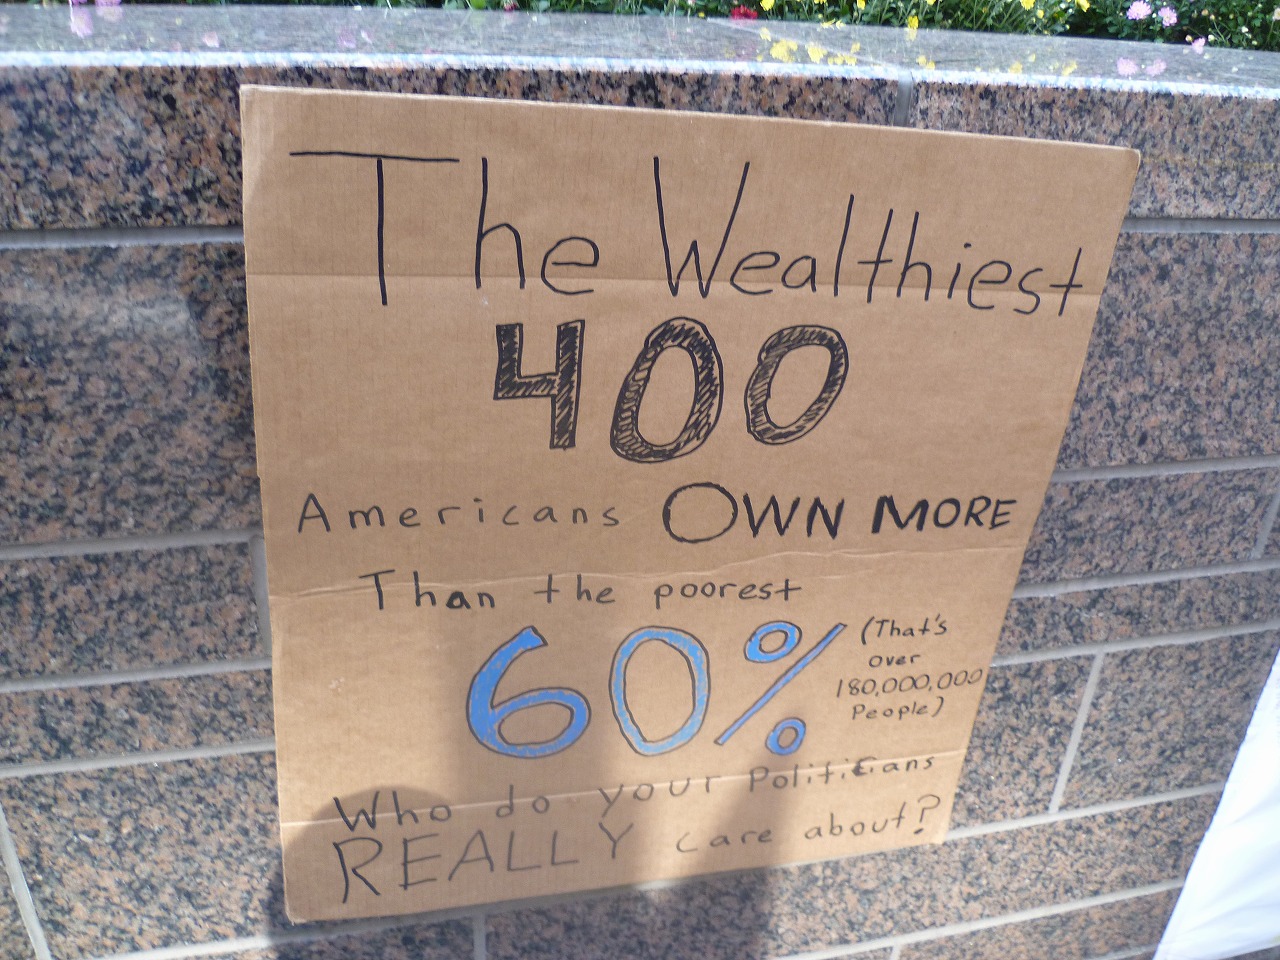 The Wealthiest
400
Americans OWN MORE
Than the poorest
60%
(That's
over
180,000,000
People)
Who do your Politicians
REALLY care about?